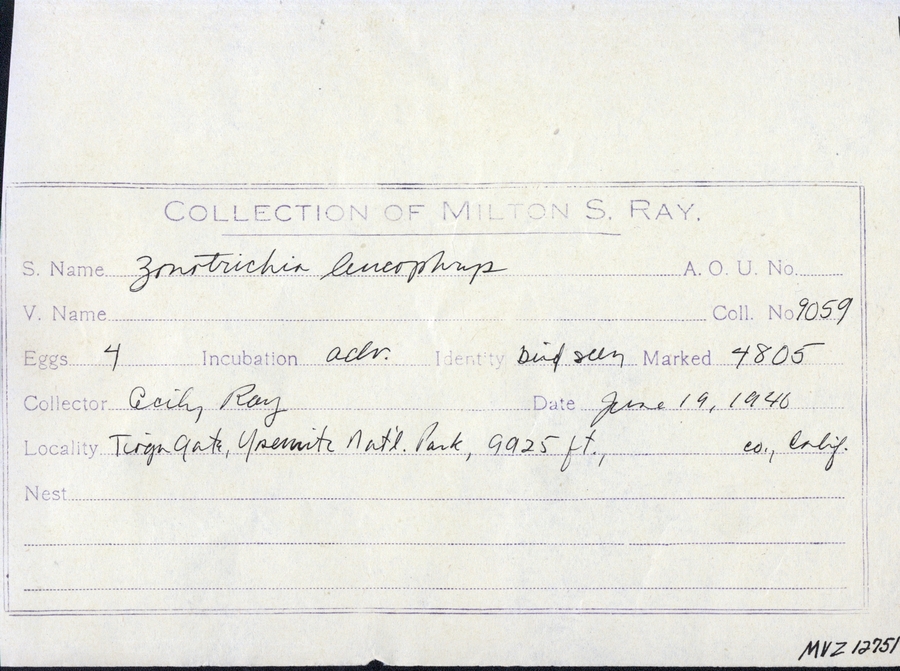 COLLECTION OF MILTON S. RAY.
S. Name Zonotrichia leucophrys A. O. U. No.
V. Name Coll. No 9059
Eggs 4 Incubation adv. Identity Bird seen Marked 4805
Collector Cecily Ray Date June 19, 1940
Locality Tioga Gate, Yosemite Nat'l. Park, 9925 ft., co., Calif.
Nest
MVZ 12751